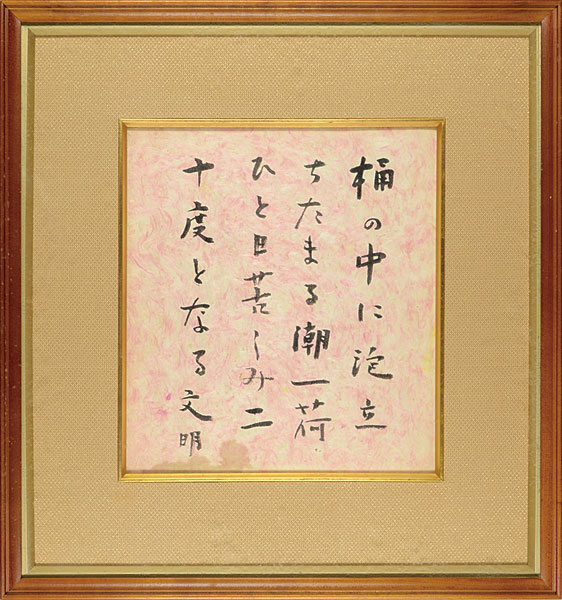 桶の中に泡立
ちたまる潮一荷
ひと日苦しみ二
十度となる文明